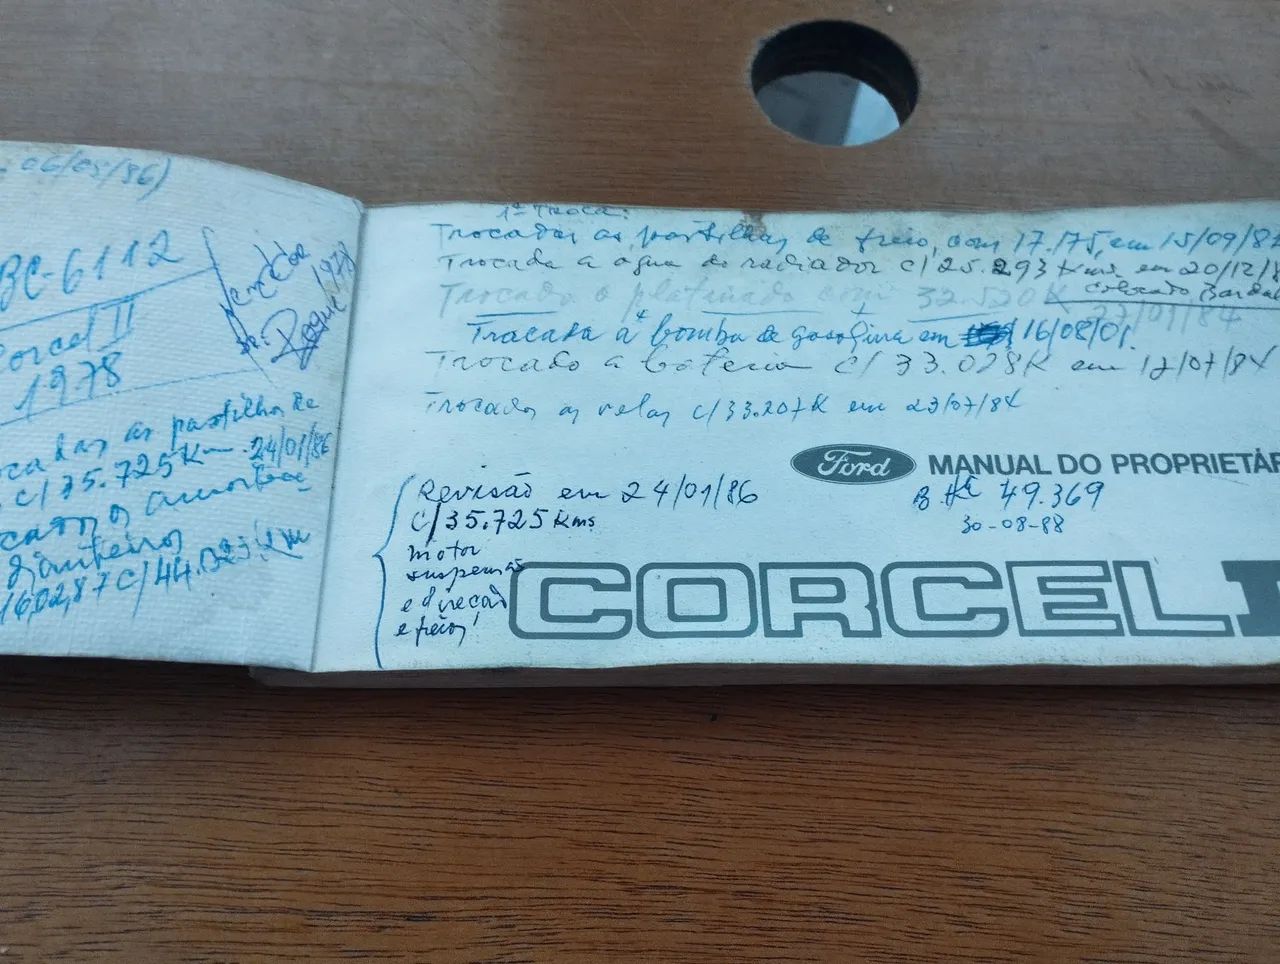 06/05/86)
BC-6112
Corcel II
1978
vendedor
Roque 1978
cadas as pastilhas de
c/35.725 Km. 24/01/86
os amortece
dianteiros
16,02,87 c/44.
1ª Troca:
Trocadas as pastilhas de freio, com 17.175, em 15/09/8
Trocada a agua do radiador c/25.293 Kms em 20/12/8
Colocado Bardal
Trocado o platinado com 32.520K
27/01/84
Trocada a bomba de gasolina em 16/08/01.
Trocado a bateria c/33.028K em 12/07/84
Trocados as velas c/33.207K em 23/07/84
Ford MANUAL DO PROPRIETÁR
49.369
30-08-88
Revisão em 24/01/86
c/35.725 Kms
motor
suspensão
e direção
e freios
CORCEL